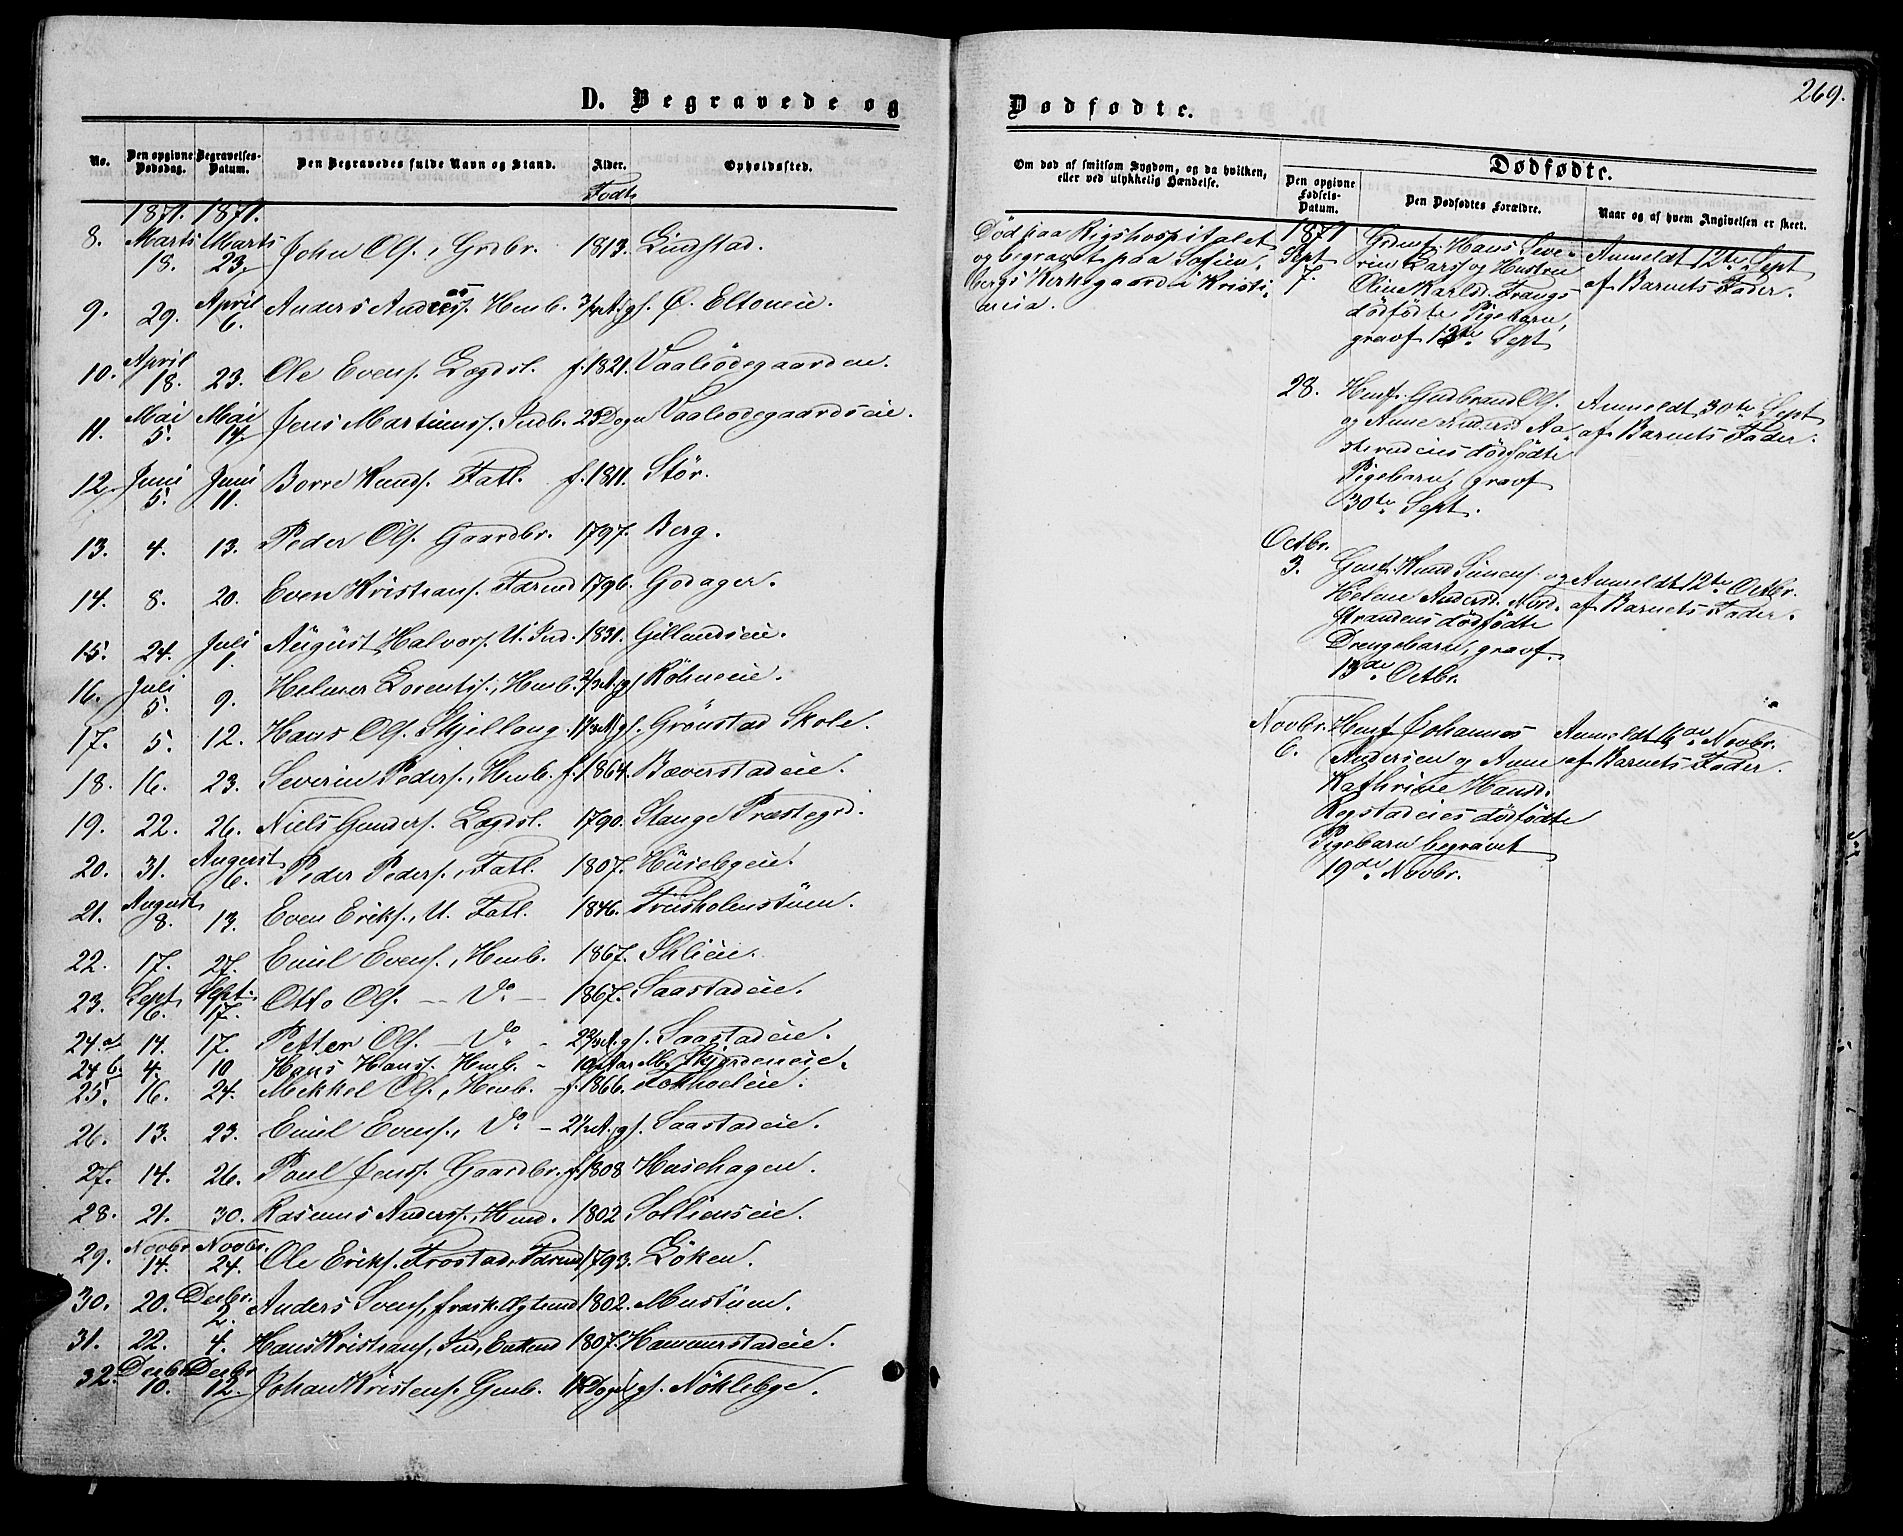 D. Begravede og
No. Den opgivne Dødsdag. Begravelses-Datum. Den Begravedes fulde Navn og Stand. Alder. Opholdssted.
Født
1871. 1871.
8. Marts 18. Marts 23. John Ols., Grdbr. 1813. Lindstad.
9. 29. April 6. Anders Anders. Hmb. 3/4 A. gl. Ø. Eltoneie.
10. April 18. 23. Ole Evens. Lægdsl. f. 1821. Vaaleødegaarden.
11. Mai 5. Mai 14. Jens Martinus. Indb. 25 Dogn Vaaleødegaardseie.
12. Juni 5. Juni 11. Borre Knuds. Fatl. f. 1811. Stör.
13. 4. 13. Peder Ols. Gaardbr. 1797. Berg.
14. 8. 20. Even Kristians. Færud 1796. Godager.
15. 24. Juli 1. August Halvors. U. Ind. 1831. Gillundseie.
16. Juli 5. 9. Helmer Lorents., Hmb. 2/3 A. gl. Röhneie.
17. 5. 12. Hans Ols. Skjellang. 1/2 A. gl. Grönstad Skole.
18. 16. 23. Severin Peders., Hmb. f. 1864. Bæverstadeie.
19. 22. 26. Niels Gunders. Lægdsl. 1790. Stange Præstegrd.
20. 31. August 6. Peder Peders., Fatl. 1807. Húsebyeie.
21. August 8. 13. Even Eriks., U. Fatl. 1846. Frúskolenstúen.
22. 17. 27. Emil Evens., Hmb. 1867. Sklieie.
23. Sept 6. Sept. 17. Otto Ols. — Do — 1867. Saastadeie.
24.a 14. 17. Petter Ols. — Do - 2 2/3 A. gl. Saastadeie.
24 b. 4. 10 Hans Hans. Hmb. - 10 Aar Skjærdeneie.
25. 16. 24. Mekkel Ols., Hmb. - f. 1866. Fokholeie.
26. 13. 23. Emil Evens., Do. - 2 1/2 A. gl. Saastadeie.
27. 14. 26. Poul Jens. Gaardbr. f. 1808 Husehagen.
28. 21. 30. Rasmus Anders., Hmd. 1802 Sollienseie.
29. Novbr 14. Novbr. 24. Ole Eriks. Frostad, Færud 1793. Löken.
30. 20. Decbr. 2. Anders Svens., frask. Ægtemd 1802. Mustúen.
31. 22. 4. Hans Kristians, Ind., Enkemd 1807. Hammerstadeie.
32. Decbr 10. Decbr 12. Johan Kristens. Gmb. 11 Dogn gl. Nöklebye.
269.
Dødfødte.
Om død af smitsom Sygdom, og da hvilken,
eller ved ulykkelig Hændelse.
Dødfødte.
Den opgivne Fødsels-Datum. Den Dødfødtes Forældre. Naar og af hvem Angivelsen er skeet.
Död paa Rigshospitalet
og begravet paa Sofien-
bergs Kirkegaard i Kristi-
ania.
1871 Sept 7.
Grdmf. Hans Seve-
rin Lars. og Hustru
Oline Karlsd. Frangs
dödfödte Pigebarn,
gravf 12te Sept
Anmeldt 12te Sept
af Barnets Fader.
28. Husf. Gudbrand Ols.
og Anne Andersd Aa-
sterudeies dödfödte
Pigebarn, gravf
30te Sept.
Anmeldt 30te Sept
af Barnets Fader.
Octbr.
3. Gmf. Knud Simens. og
Helene Andersd. Nord-
strandens dödfödte
Drengebarn, gravf.
13de Octbr.
Anmeldt 12te Octbr.
af Barnets Fader.
Novbr. 6.
Husf Johannes
Andersen og Anne
Kathrine Hansd.
Rogstadeies dödfödte
Pigebarn begravet
19de Novbr.
Anmeldt Novbr.
af Barnets Fader.